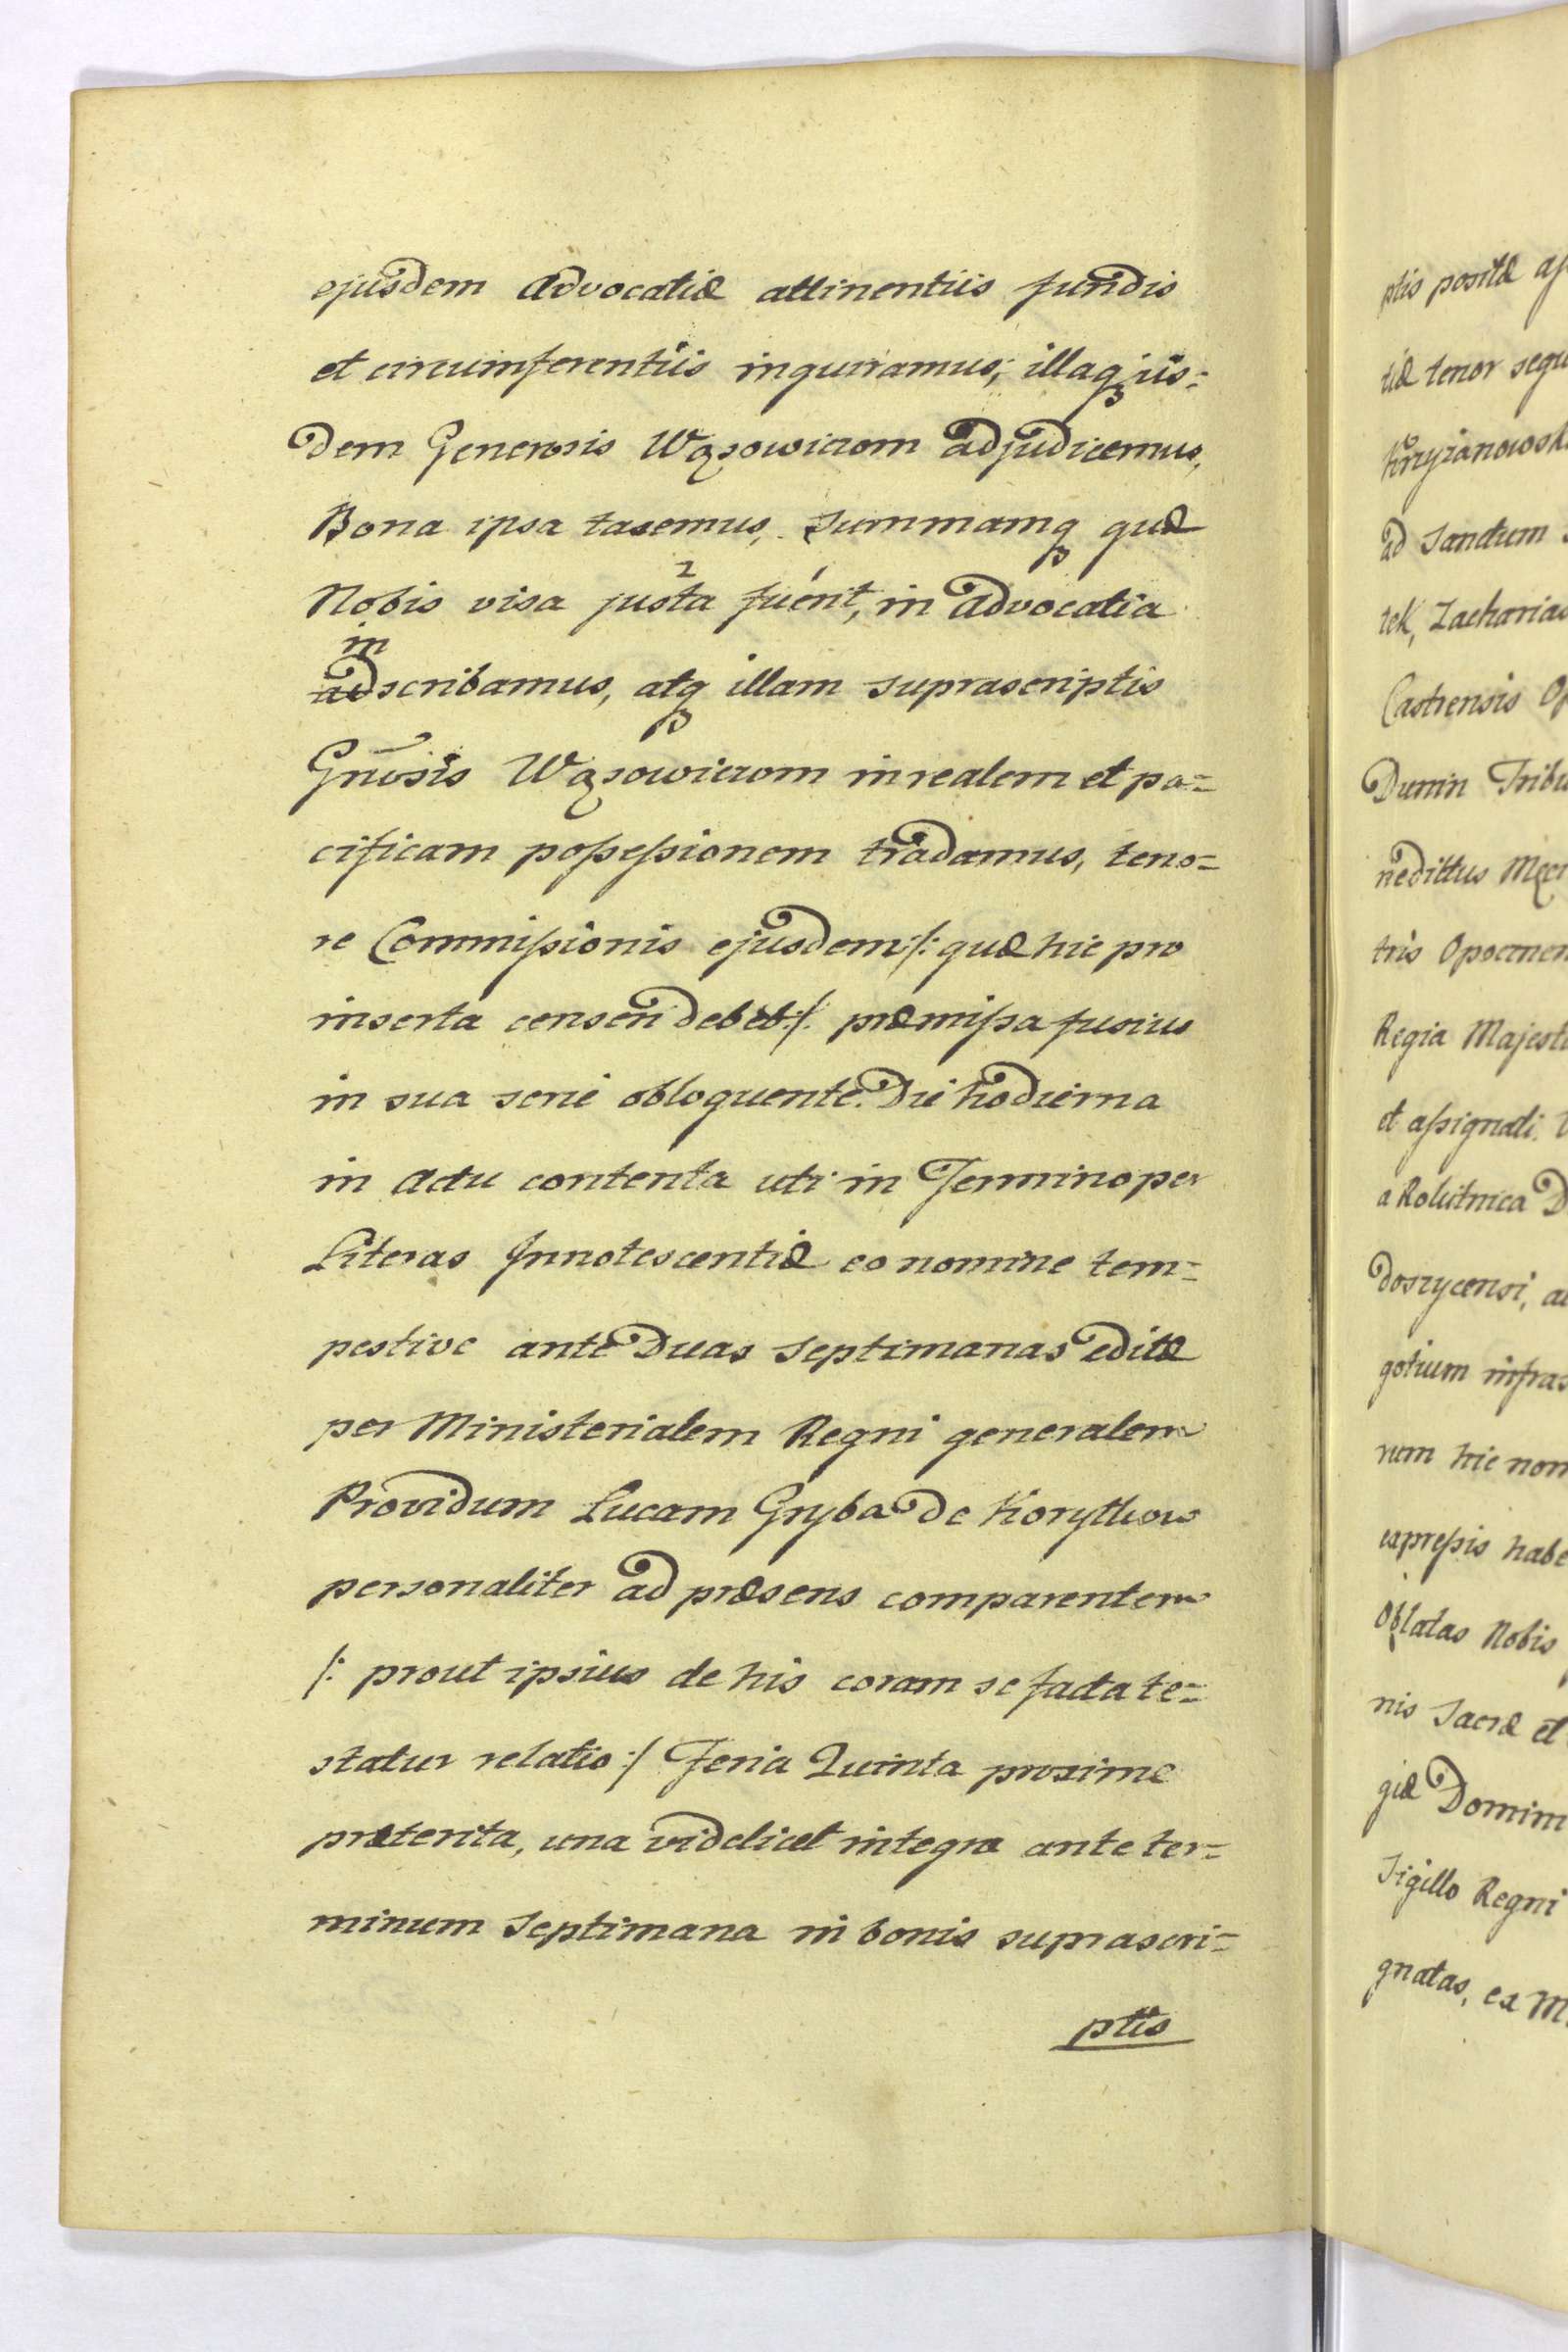 ejusdem Advocatiæ attinentiis fundis
et circumferentiis inquiramus, illaq iis=
dem Generosis Wąsowiczom adjudicemus,
Bona ipsa taxemus, summamq quæ
2 1
Nobis visa justa fuerit, in Advocatia
in
adscribamus, atq illam suprascriptis
Gnosis Wąsowiczom in realem et pa=
cificam possessionem tradamus, teno=
re Commissionis ejusdem /: quæ hic pro
inserta censeri debet :/ præmissa fusius
in sua serie obloquente. Die hodierna
in Actu contenta uti in Termino per
Literas Innotescentiæ eo nomine tem=
pestive ante Duas Septimanas editæ
per Ministerialem Regni generalem
Providum Lucam Gryba de Korythow
personaliter ad præsens comparentem
/: prout ipsius de his coram se facta te=
statur relatio :/ Feria Quinta proxime
præterita, una videlicet integra ante ter=
minum Septimana in bonis suprascri=
ptis
ptis positæ
tiæ tenor
ad Sanctum
tek, Zacharias
Castrensis
Dunin
tris
Regia
et assignati.
a Rolitnica
gotium
rum hic non
expressis
Oblatas Nobis
nis Sacræ et
giæ
Sigillo Regni
gnatas, ex